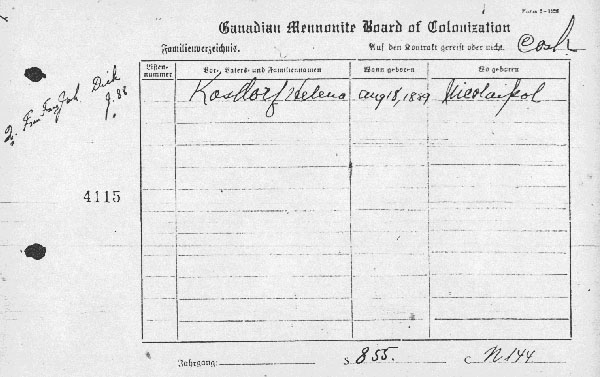 Form 2-1926
Canadian Mennonite Board of Colonization
Familienverzeichnis. Auf den Kontrakt gereist oder nicht. Cash
Listen-nummer Vor-, Vaters- und Familiennamen Wann geboren Wo geboren
Kosdorf, Helena Aug 18, 1889 Nicolaipol
Dick
4115
Jahrgang: $ 855. C N 144